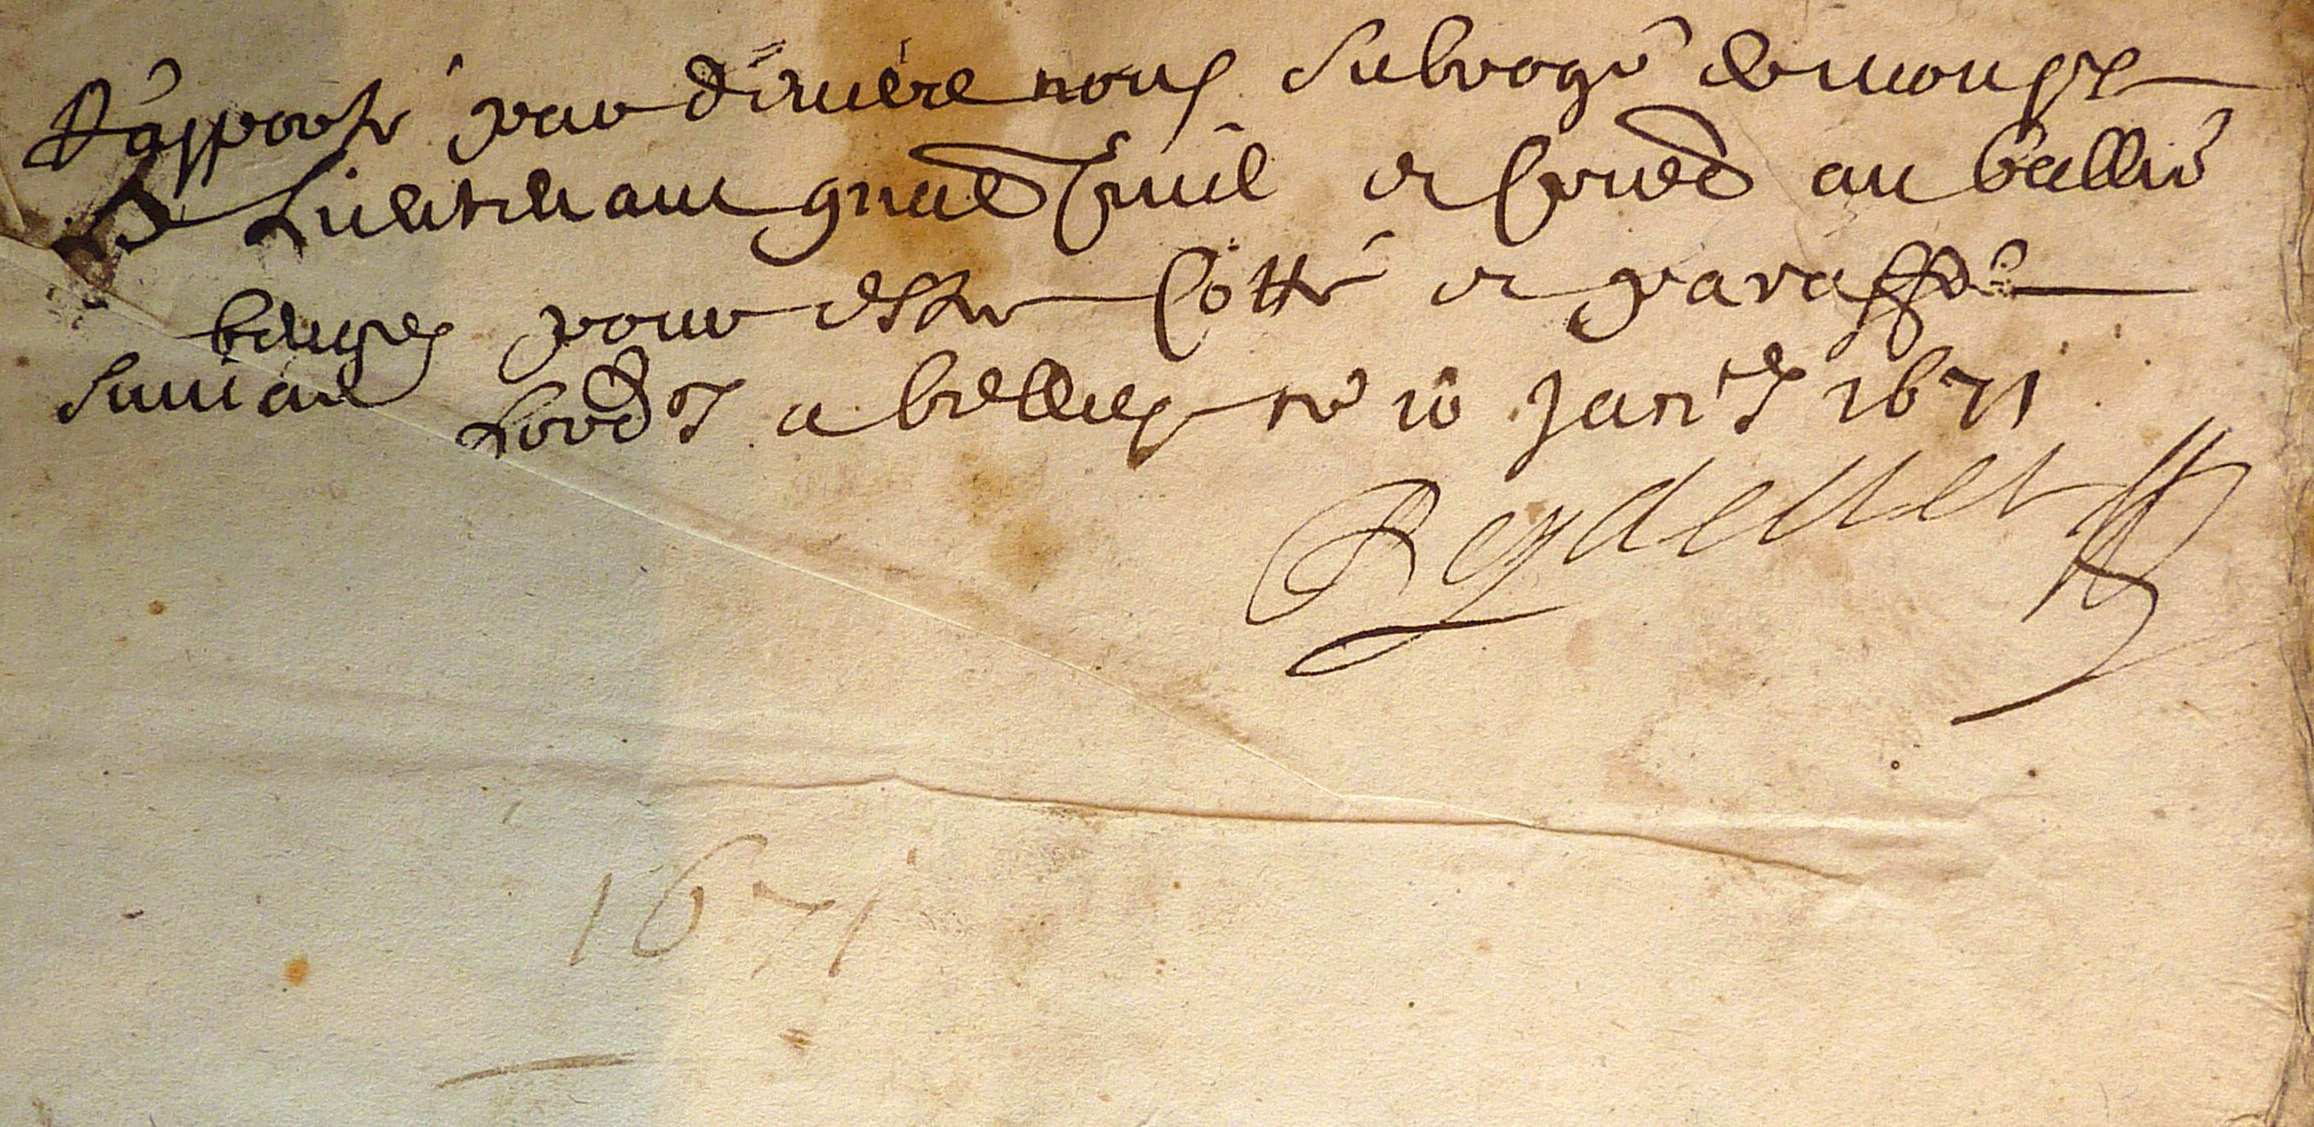 Rapporté par devers nous subrogé de monsr
Le Lieutenant gnal Civil et Crimel au balliage
beugey pour estre Cotté et paraffé
suivant Lord.ce a belley ce 10 Janr 1671
Reydellet
1671